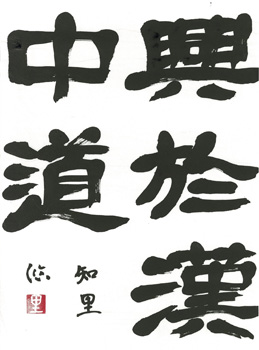 興於漢
中道
知里
里